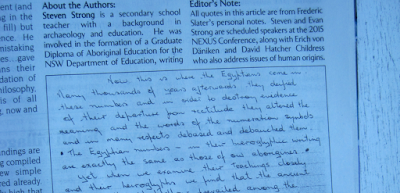 ent (and
ng in the
fill) but
nce. He
mistaking
es gave
ans their
dation of
ilosophy.
is of all
g, now and
ndings are
compiled
ew simple
zed already
About the Authors:
Steven Strong is a secondary school
teacher with a background in
archaeology and education. He was
involved in the formation of a Graduate
Diploma of Aboriginal Education for the
NSW Department of Education, writing
Editor's Note:
All quotes in this article are from Frederic
Slater's personal notes. Steven and Evan
Strong are scheduled speakers at the 2015
NEXUS Conference, along with Erich von
Däniken and David Hatcher Childress
who also address issues of human origins.
Now this is where the Egyptians came —
Many thousands of years afterwards they defied
these numbers and in order to destroy evidence
of their departure from rectitude they altered the
meaning and the words of the numeration symbols
and in many respects debased and debauched them.
• The Egyptian numbers — their hieroglyphic writing
are exactly the same as those of our aborigines.
yet when we examine their teachings closely
and their hieroglyphs we find that the ancient
among the